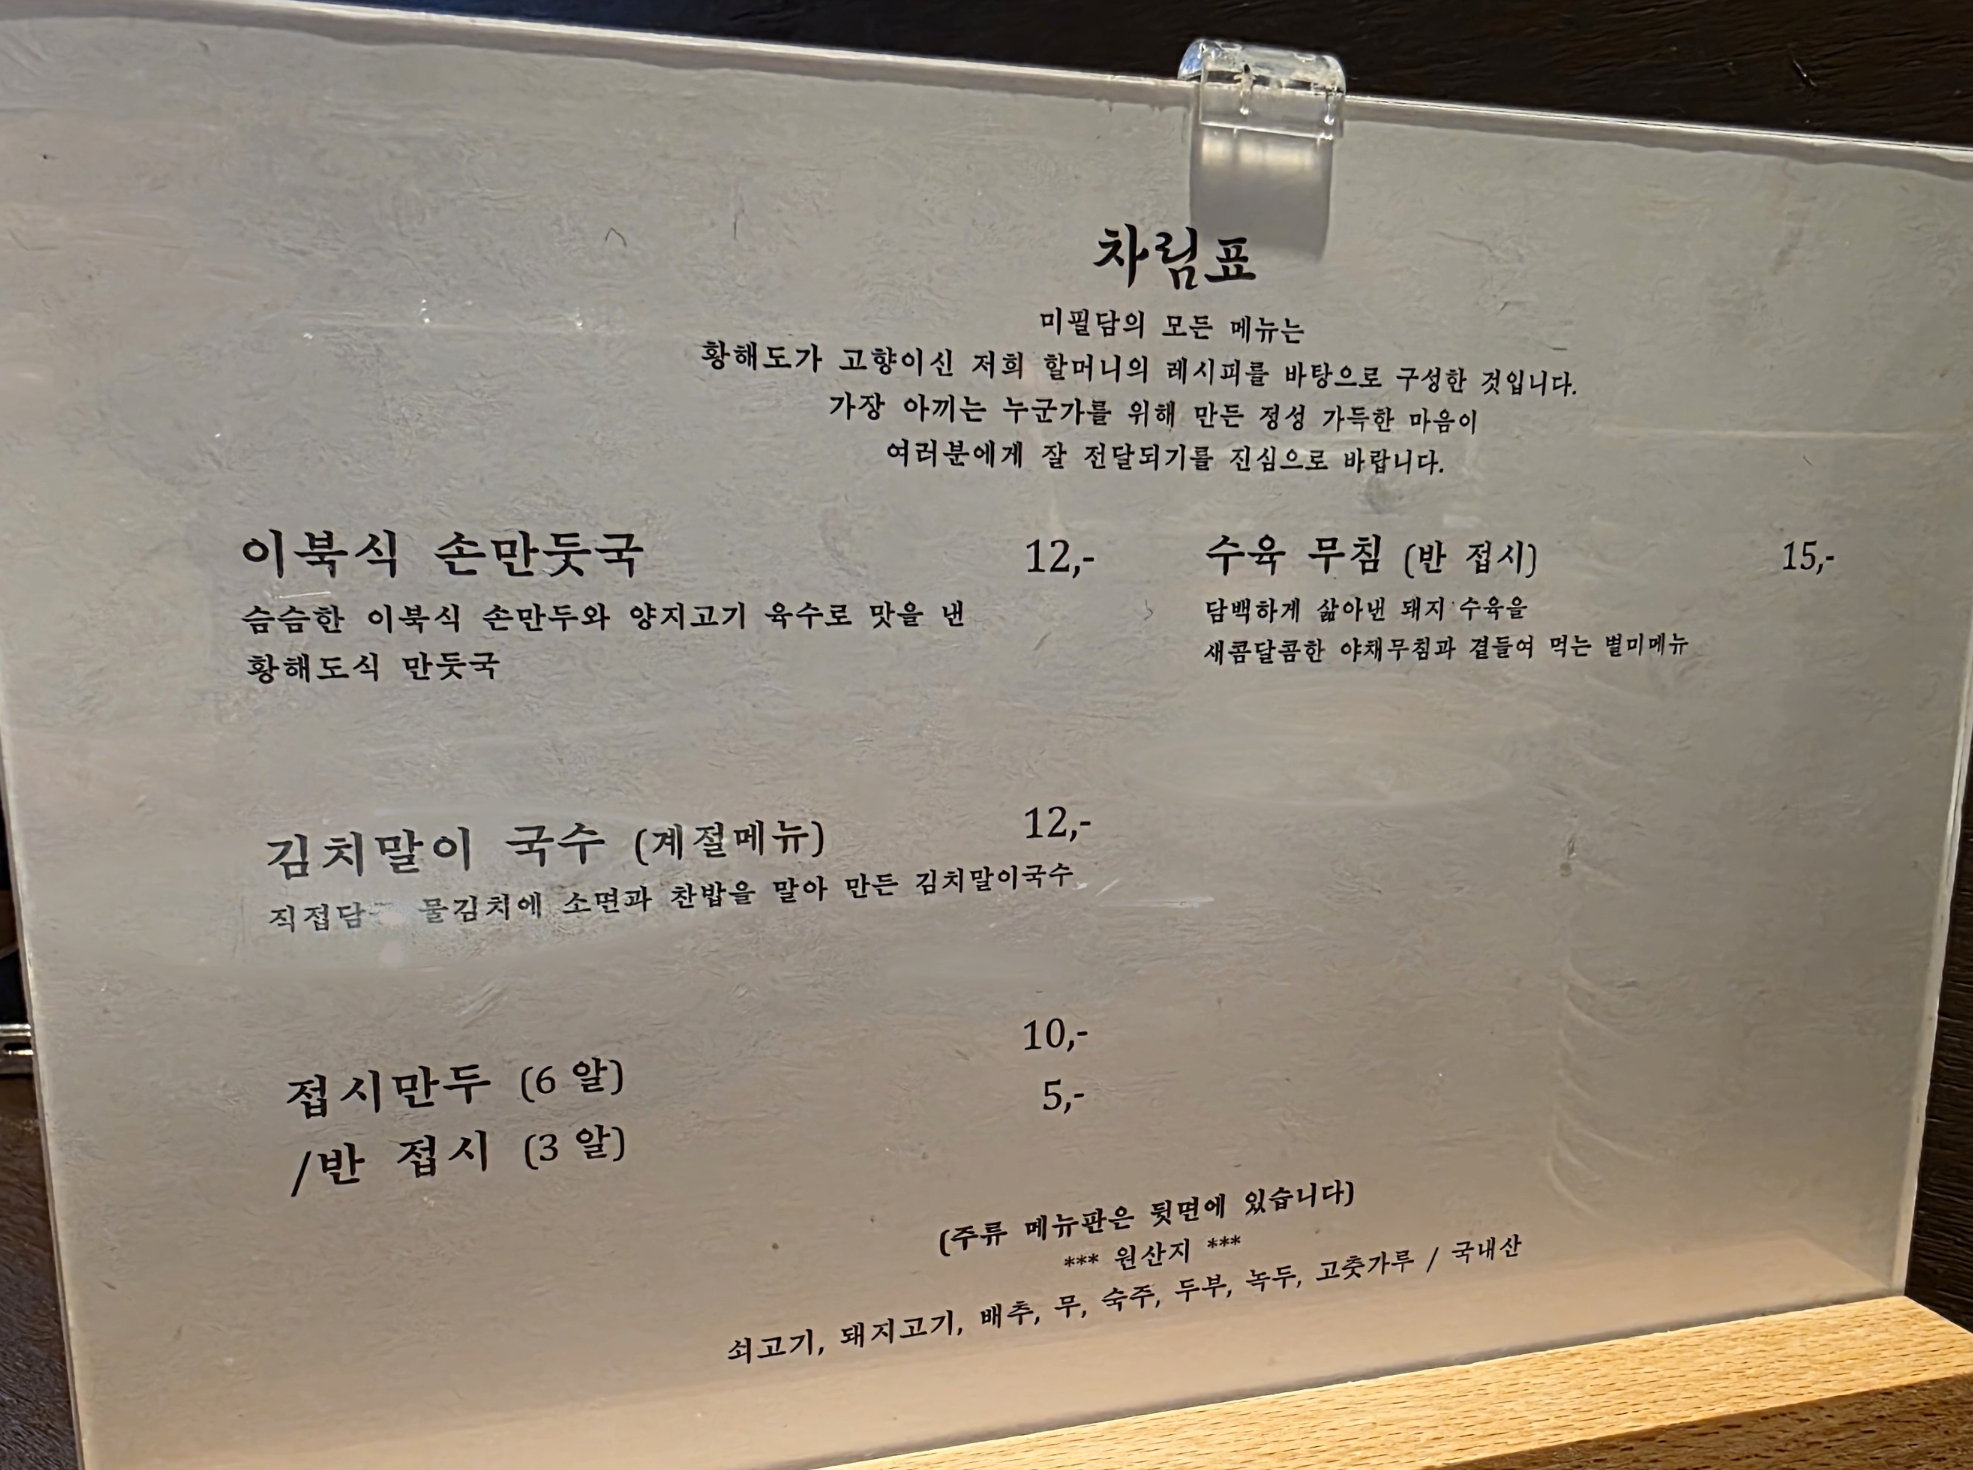 차림표
미필담의 모든 메뉴는
황해도가 고향이신 저희 할머니의 레시피를 바탕으로 구성한 것입니다.
가장 아끼는 누군가를 위해 만든 정성 가득한 마음이
여러분에게 잘 전달되기를 진심으로 바랍니다.
이북식 손만둣국 12,-
슴슴한 이북식 손만두와 양지고기 육수로 맛을 낸
황해도식 만둣국
김치말이 국수 (계절메뉴) 12,-
물김치에 소면과 찬밥을 말아 만든 김치말이국수
접시만두 (6 알) 10,-
/반 접시 (3 알) 5,-
수육 무침 (반 접시) 15,-
담백하게 삶아낸 돼지 수육을
새콤달콤한 야채무침과 곁들여 먹는 별미메뉴
(주류 메뉴판은 뒷면에 있습니다)
*** 원산지 ***
쇠고기, 돼지고기, 배추, 무, 숙주, 두부, 녹두, 고춧가루 / 국내산